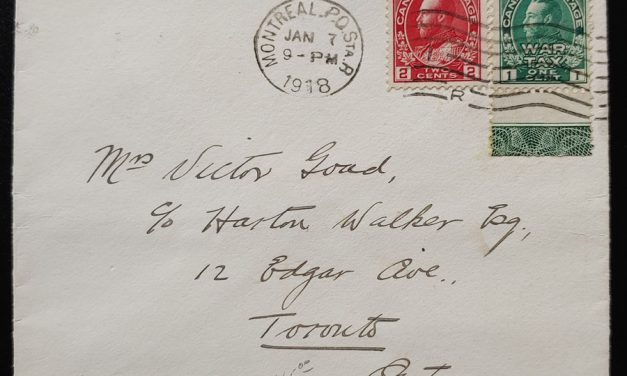 MONTREAL.P.Q. STA.R
JAN 7
9-PM
1918
CANADA POSTAGE
2 TWO CENTS 2
WAR TAX
1 ONE CENT 1
R
Mrs Victor Goad,
c/o Harton Walker Esq,
12 Edgar Ave.,
Toronto
Ont.